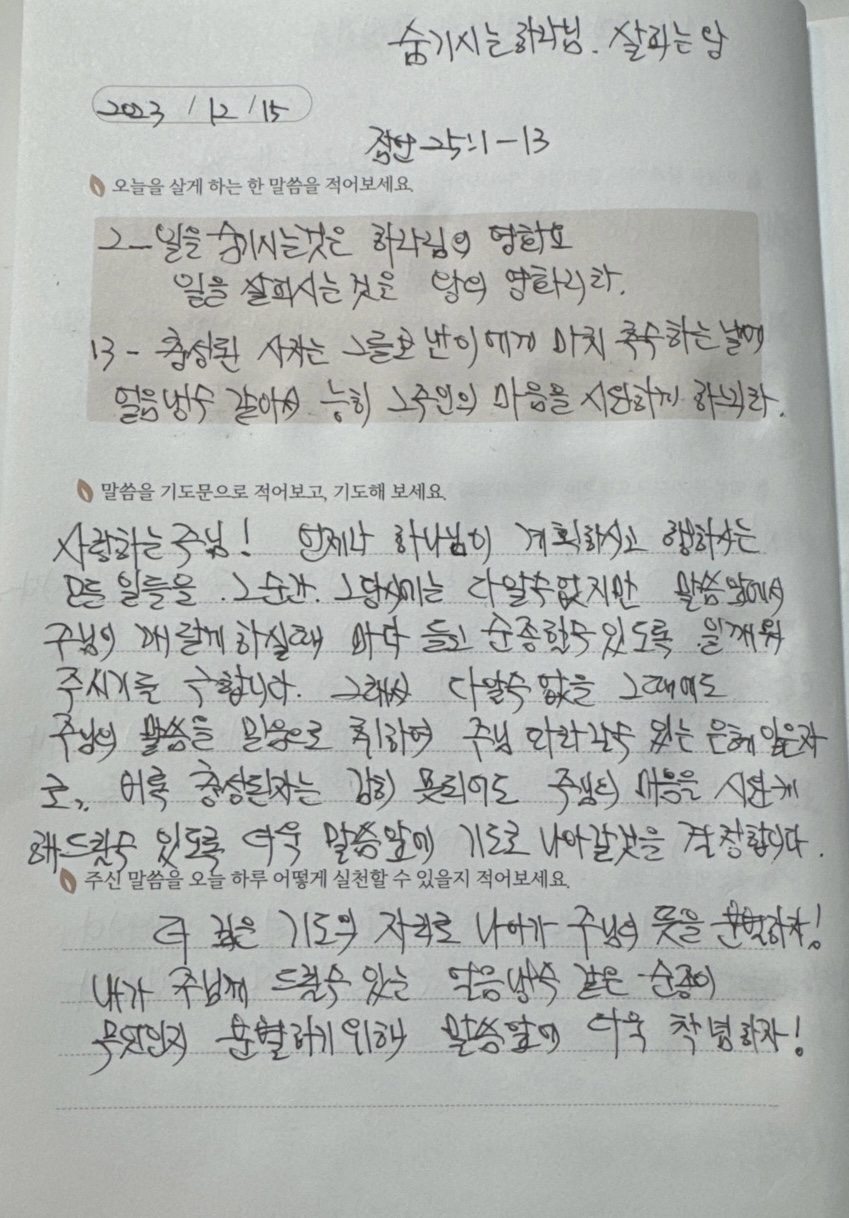 숨기시는 하나님. 살피는 왕
2023 / 12 / 15
잠언 25:1-13
오늘을 살게 하는 한 말씀을 적어보세요.
2 - 일을 숨기시는것은 하나님의 영화요
일을 살피시는 것은 왕의 영화니라.
13 - 충성된 사자는 그를 보낸이에게 마치 추수하는 날에
얼음냉수 같아서 능히 그주인의 마음을 시원하게 하느니라.
말씀을 기도문으로 적어보고, 기도해 보세요.
사랑하는 주님! 언제나 하나님이 계획하시고 행하시는
모든 일들을 그 순간. 그당시에는 다알수없지만 말씀앞에서
주님이 깨닫게 하실때 마다 듣고 순종할수있도록 일깨워
주시기를 구합니다. 그래서 다알수 없을 그때에도
주님의 말씀을 믿음으로 취하여 주님 따라 갈수 있는 은혜 입은자
로,, 비록 충성된자는 감히 못되어도 주님의 마음을 시원케
해드릴수 있도록 더욱 말씀앞에 기도로 나아갈것을 결정합니다.
주신 말씀을 오늘 하루 어떻게 실천할 수 있을지 적어보세요.
더 깊은 기도의 자리로 나아가 주님의 뜻을 분별하자!
내가 주님께 드릴수 있는 얼음냉수 같은 순종이
무엇인지 분별하기 위해 말씀앞에 더욱 착념하자!